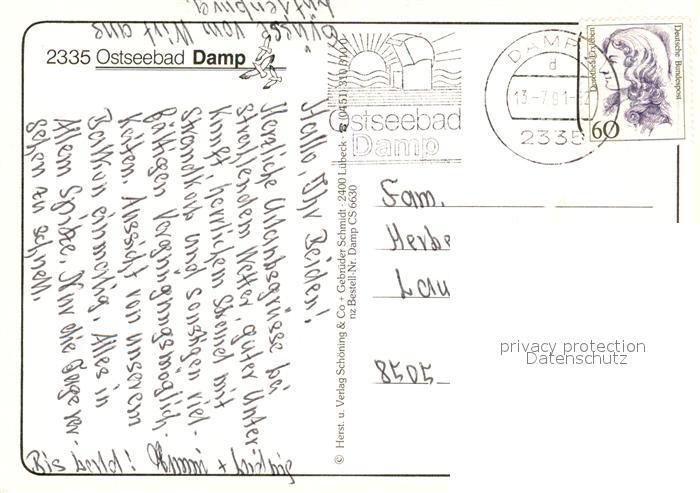 2335 Ostseebad Damp
Grüsse vom Wirt aus
Hallo, Ihr Beiden!
Herzliche Urlaubsgrüsse bei
strahlendem Wetter, guter Unter
kunft, herrlichem Strand mit
Strandkorb und sonstigen viel-
fältigen Vergnügungsmöglich
keiten. Aussicht von unserem
Balkon einmalig. Alles in
Allem Spitze. Nur die Tage ver-
gehen zu schnell.
Bis bald!
© Herst. u. Verlag Schöning & Co + Gebrüder Schmidt · 2400 Lübeck · ☎ (0451) 310 3100
nz Bestell-Nr. Damp CS 6630
Ostseebad
Damp
DAMP
d
13.-7.91-12
2335
Dorothea Erxleben
Deutsche Bundespost
60
Fam.
Herbe
Lau
8505
privacy protection
Datenschutz